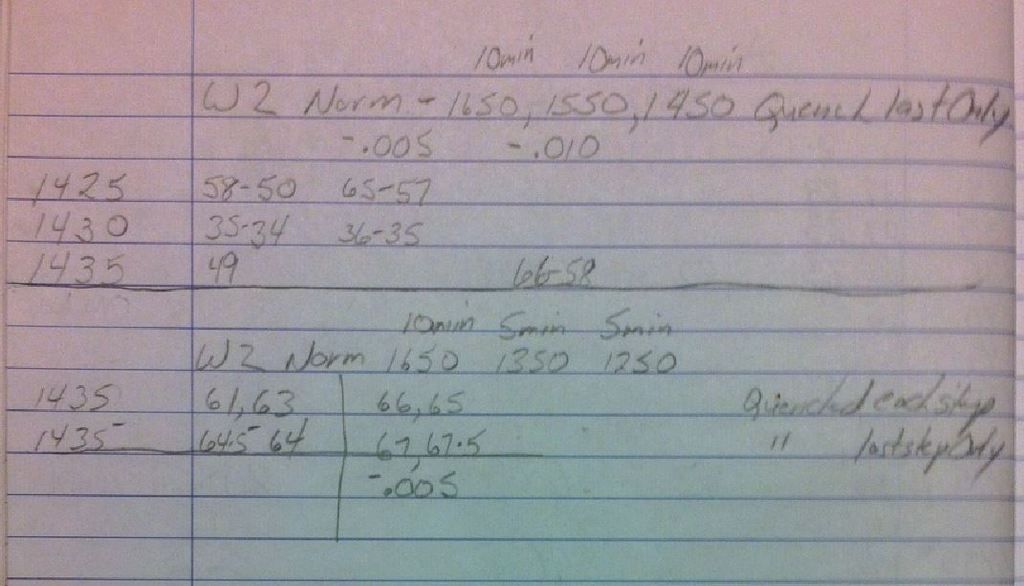 10min 10min 10min
W2 Norm - 1650, 1550, 1450 Quench last Only
-.005 -.010
1425 58-50 65-57
1430 35-34 36-35
1435 49 66-58
10min 5min 5min
W2 Norm 1650 1350 1250
1435 61,63 66,65 Quenched each step
1435 64.5 64 67,67.5 " last step Only
-.005